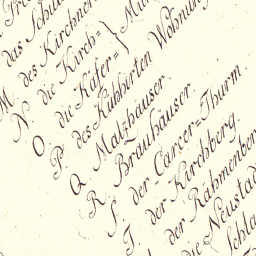 das Schul
M des Kirchner
N. die Kirch=
O. die Käfer=
P. des Kuhhirten Wohnung
Q Maltzhäuser.
R Brauhäuser.
S. der Carcer=Thurm.
T. der Kirchberg.
der Rähmenber
die Neustad
Schla